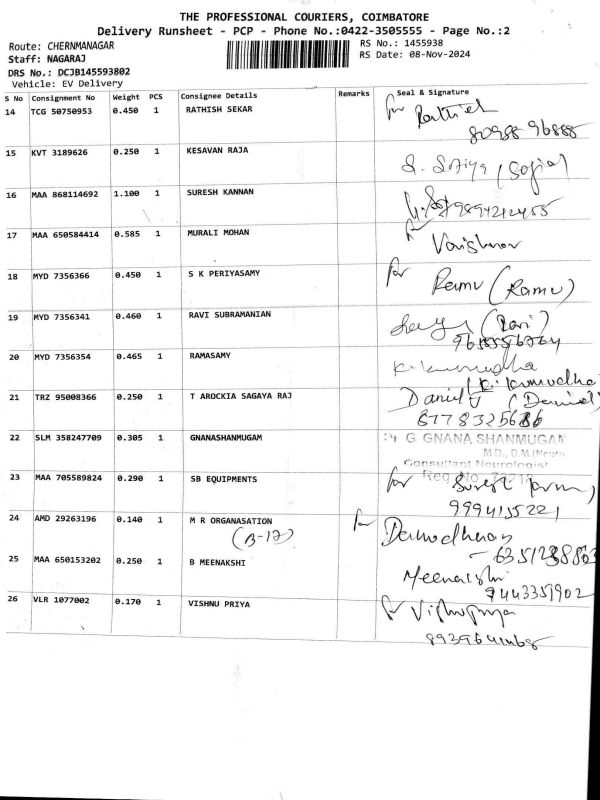 THE PROFESSIONAL COURIERS, COIMBATORE
Delivery Runsheet - PCP - Phone No.:0422-3505555 - Page No.:2
Route: CHERNMANAGAR
RS No.: 1455938
Staff: NAGARAJ
RS Date: 08-Nov-2024
DRS No.: DCJB145593802
Vehicle: EV Delivery
S No Consignment No Weight PCS Consignee Details Remarks Seal & Signature
14 TCG 50750953 0.450 1 RATHISH SEKAR for Rathish
80988 96888
15 KVT 3189626 0.250 1 KESAVAN RAJA (Sofia)
16 MAA 868114692 1.100 1 SURESH KANNAN
17 MAA 650584414 0.585 1 MURALI MOHAN for Vaishnav
18 MYD 7356366 0.450 1 S K PERIYASAMY for Ramu (Ramu)
19 MYD 7356341 0.460 1 RAVI SUBRAMANIAN (Ravi)
20 MYD 7356354 0.465 1 RAMASAMY K. Kumudha
(K. Kumudha)
21 TRZ 95008366 0.250 1 T AROCKIA SAGAYA RAJ Daniel J (Daniel)
22 SLM 358247709 0.305 1 GNANASHANMUGAM Dr G GNANA SHANMUGAM
M.D., D.M.(Neuro)
Consultant Neurologist
Reg No.
23 MAA 705589824 0.290 1 SB EQUIPMENTS for Suresh
9994155221
24 AMD 29263196 0.140 1 M R ORGANASATION for Damodharan
(B-12)
25 MAA 650153202 0.250 1 B MEENAKSHI Meenakshi
9443351902
26 VLR 1077002 0.170 1 VISHNU PRIYA for Vishnupriya